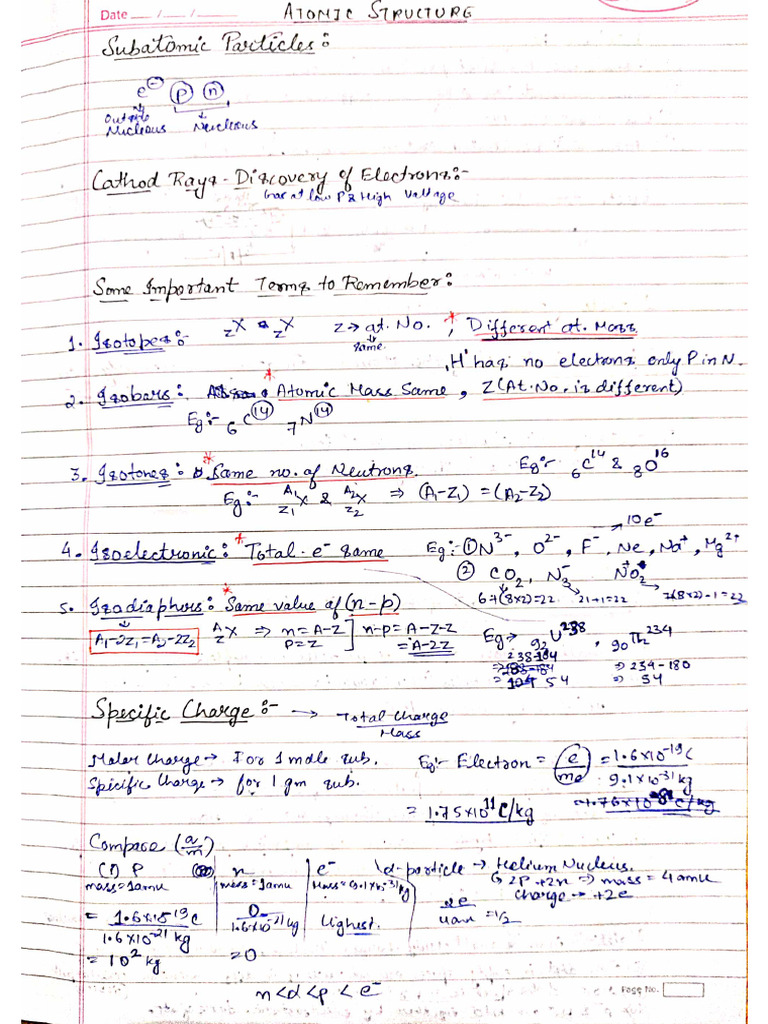 Date ___/___/___
ATOMIC STRUCTURE
Subatomic Particles:
e⁻ p n
outside Nucleous
Nucleous
Cathod Rays - Discovery of Electrons:-
Gas at low P & High Voltage
Some Important Terms to Remember:
1. Isotopes:- zX & zX Z → at. No. , Different at. Mass
same
, H' has no electrons only P in N.
2. Isobars: Atomic Mass Same, Z (At. No. is different)
Eg:- ₆C¹⁴ ₇N¹⁴
3. Isotones: Same no. of Neutrons. Eg:- ₆C¹⁴ & ₈O¹⁶
Eg:- A₁ Z₁ X & A₂ Z₂ X ⇒ (A₁-Z₁) = (A₂-Z₂)
4. Isoelectronic: Total e⁻ same Eg:- ① N³⁻, O²⁻, F⁻, Ne, Na⁺, Mg²⁺ → 10e⁻
② CO₂, N₃⁻ NO₂⁺
6+(8x2)=22 21+1=22 7(8x2)-1=22
5. Isodiaphers: Same value of (n-p)
A₁-2Z₁=A₂-2Z₂
A Z X ⇒ n=A-Z p=Z ] n-p=A-Z-Z
=A-2Z
Eg → ₉₂U²³⁸ , ₉₀Th²³⁴
⇒ 238-184 ⇒ 234-180
⇒ 54 ⇒ 54
Specific Charge:- → Total Charge
Mass
Molar Charge → For 1 mole sub.
Specific Charge → for 1 gm sub.
Eg:- Electron = (e/me) = 1.6x10⁻¹⁹C
9.1x10⁻³¹kg
= 1.75x10¹¹ C/kg
Compare (a/m)
(1) P n e⁻ α-particle → Helium Nucleus.
mass=1amu mass=1amu Mass=9.1x10⁻³¹kg
↳ 2P+2n ⇒ mass = 4amu
Charge → +2e
= 1.6x10¹⁹C 0 Highest. 2e
1.6x10⁻²¹kg 1.6x10⁻²¹kg 4amu =1/2
= 10²kg. =0
n<α<p<e⁻
Page No.